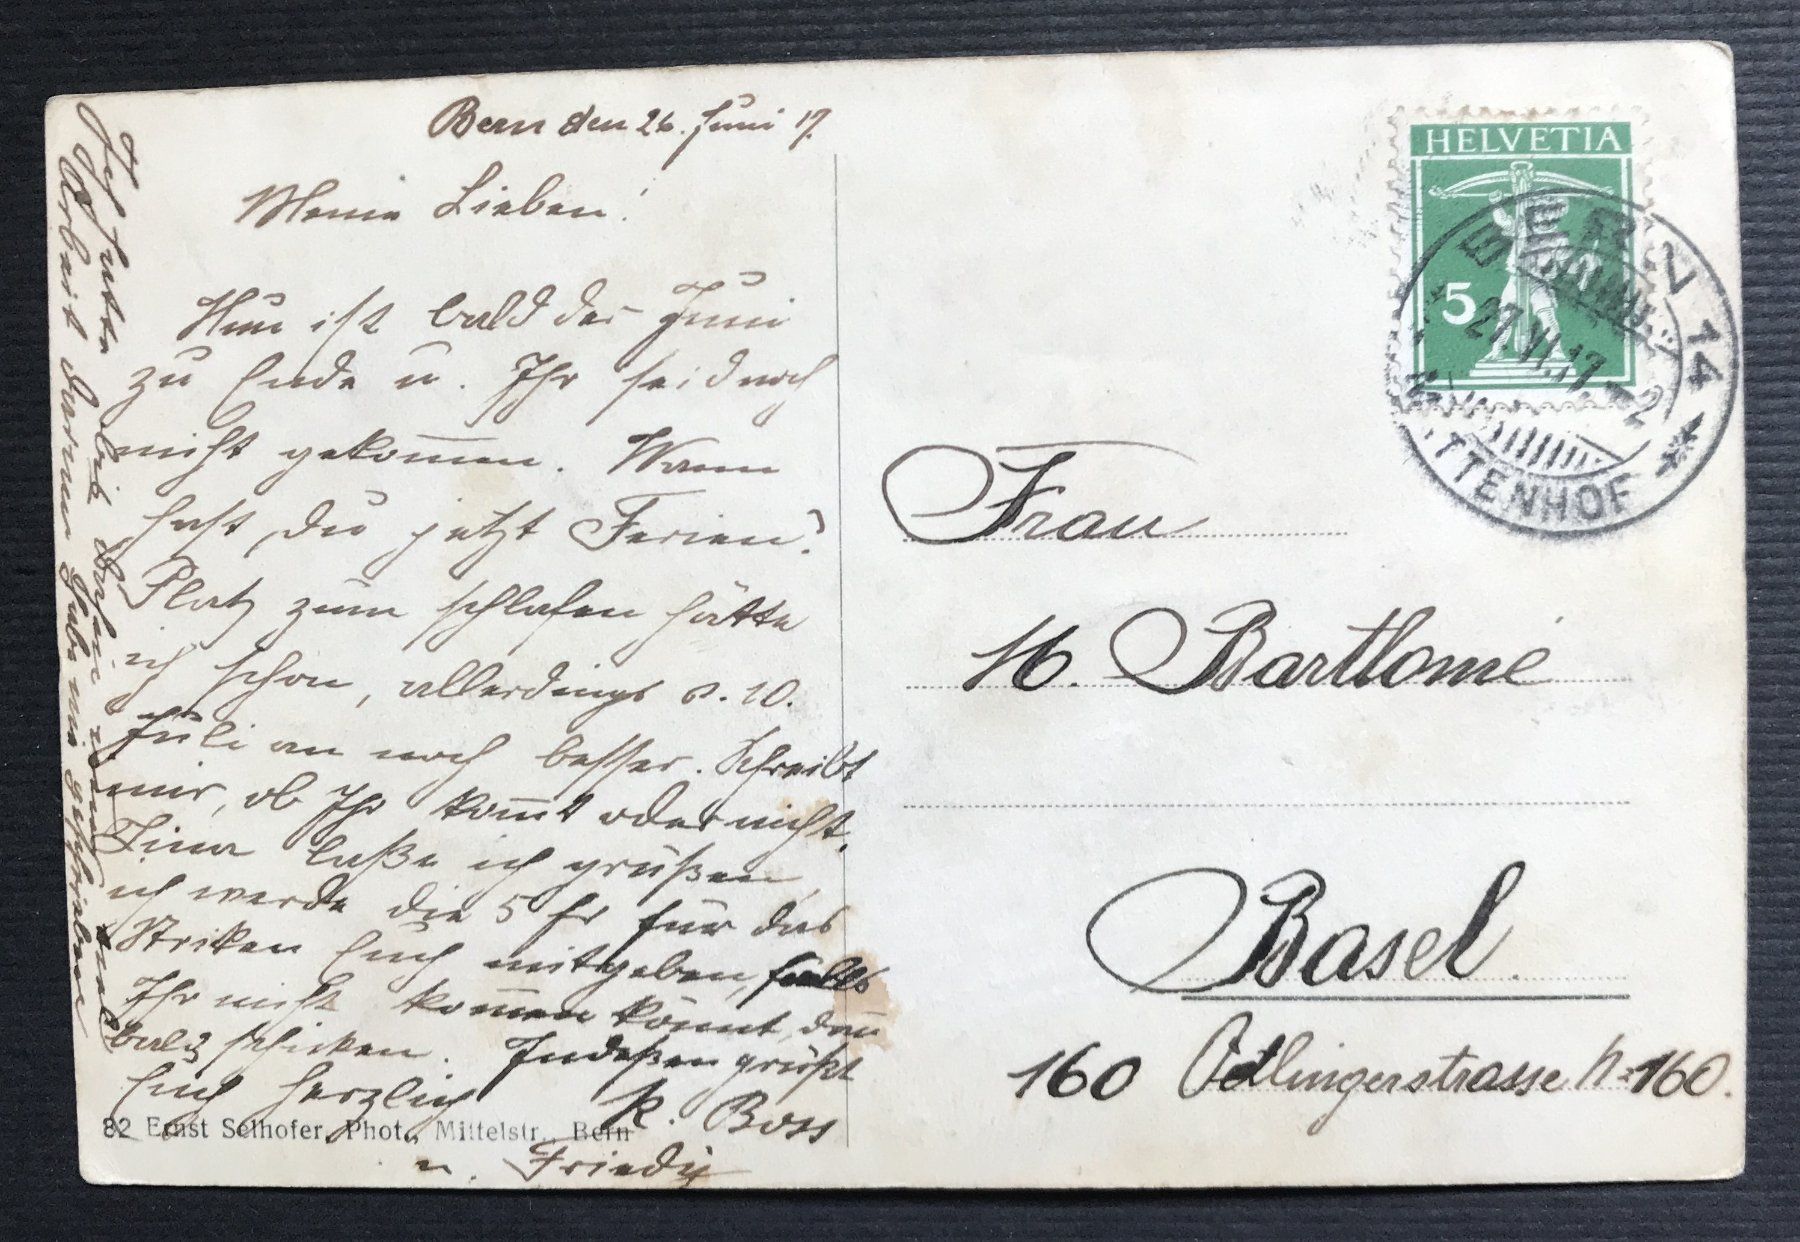 Bern den 26. Juni 17.
Meine Lieben!
Nun ist bald der Juni
zu Ende u. Ihr seid noch
nicht gekom̅en. Wann
hast du jetzt Ferien?
Platz zum schlafen hätte
ich schon, allerdings v. 10.
Juli an noch besser. Schreibt
mir, ob Ihr kom̅t oder nicht.
Tina laße ich grüßen,
ich werde die 5 fr für das
Striken Euch mitgeben, falls
Ihr nicht kom̅en könnt, dan̅
bald schicken. Indeßen grüßt
Euch herzlich R. Boss
u. Friedy
Ich hatte bis dahin viel
Arbeit darum habe nie geschrieben
82 Ernst Selhofer, Phot., Mittelstr. Bern
HELVETIA
5
BERN 14
27.VI.17
TTENHOF
Frau
H. Bartlomé
Basel.
160 Ötlingerstrasse N. 160.